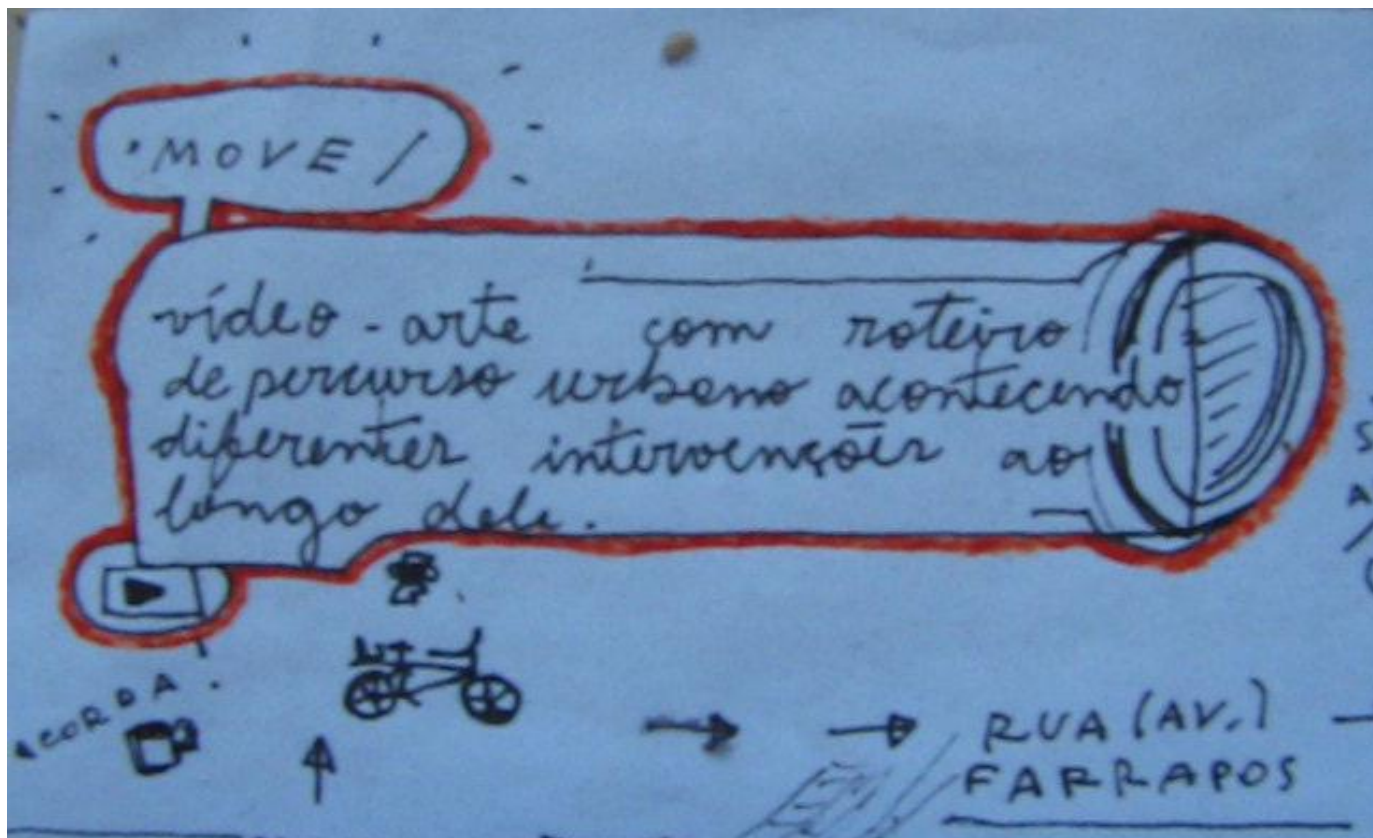 ·MOVE/
vídeo-arte com roteiro
de percurso urbano acontecendo
diferentes intervenções ao
longo dele.
ACORDA.
RUA (AV.)
FARRAPOS